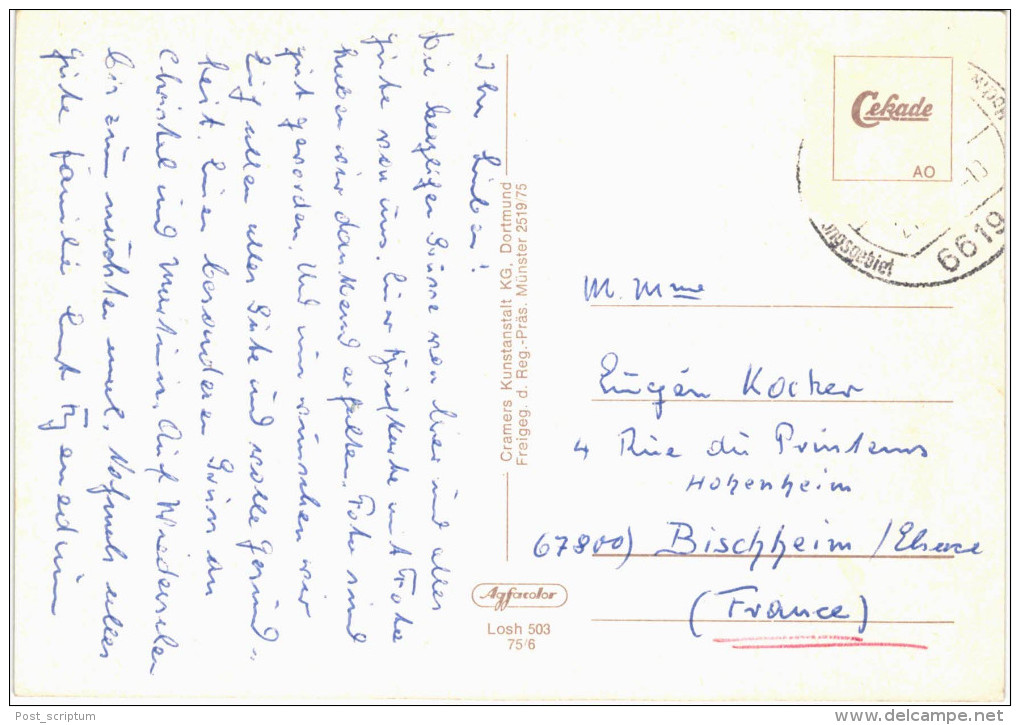 Ihr Lieben!
Die herzlichen Grüsse von hier und alles
Gute von uns. Eure Karte mit Foto
haben wir dankend erhalten. Foto sind
gut geworden. Und nun wünschen wir
Euch allen alles Gute und volle Gesund-
heit. Einen besonderen Gruss an
Christel und Martin. Auf Wiedersehen
bis zum nächsten mal. Nochmals alles
Gute Familie
Cramers Kunstanstalt KG, Dortmund
Freigeg. d. Reg.-Präs. Münster 2519/75
Agfacolor
Losh 503
75/6
Cekade
AO
ungsgebiet
6619
M. Mme
Eugén Kocher
4 Rue du Printems
Hohenheim
67800) Bischheim /Elsace
(France)
Post_scriptum
www.delcampe.net